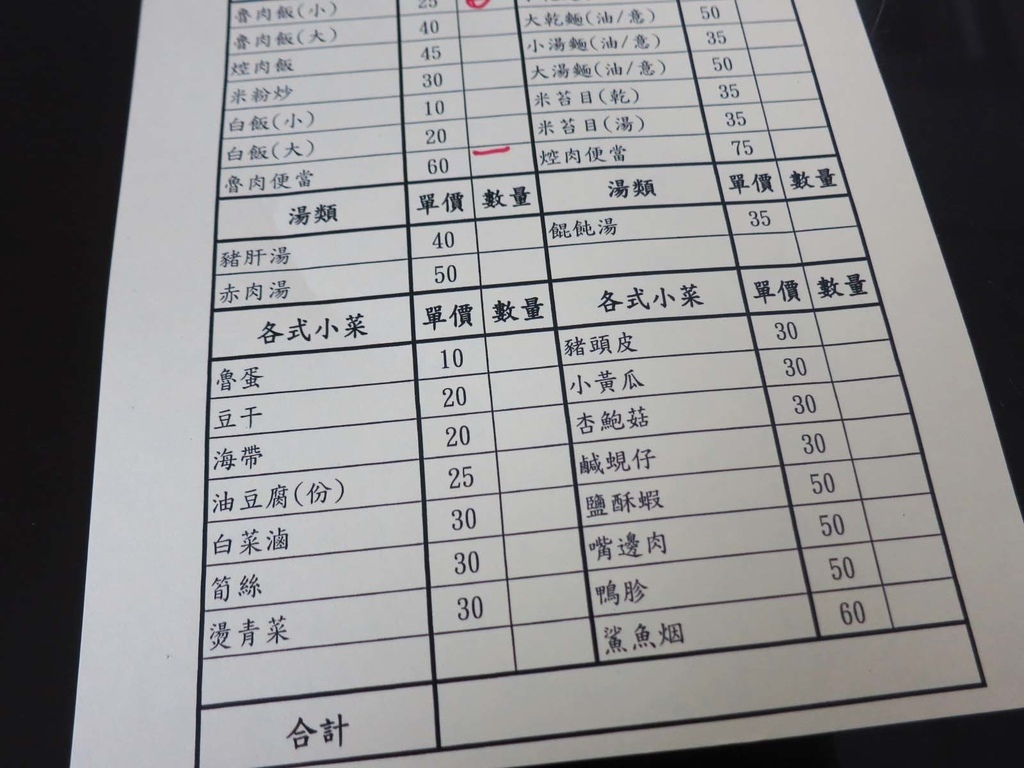 魯肉飯(小) 25
魯肉飯(大) 40 大乾麵(油/意) 50
焢肉飯 45 小湯麵(油/意) 35
米粉炒 30 大湯麵(油/意) 50
白飯(小) 10 米苔目(乾) 35
白飯(大) 20 米苔目(湯) 35
魯肉便當 60 一 焢肉便當 75
湯類 單價 數量 湯類 單價 數量
豬肝湯 40 餛飩湯 35
赤肉湯 50
各式小菜 單價 數量 各式小菜 單價 數量
魯蛋 10 豬頭皮 30
豆干 20 小黃瓜 30
海帶 20 杏鮑菇 30
油豆腐(份) 25 鹹蜆仔 30
白菜滷 30 鹽酥蝦 50
筍絲 30 嘴邊肉 50
燙青菜 30 鴨胗 50
鯊魚烟 60
合計